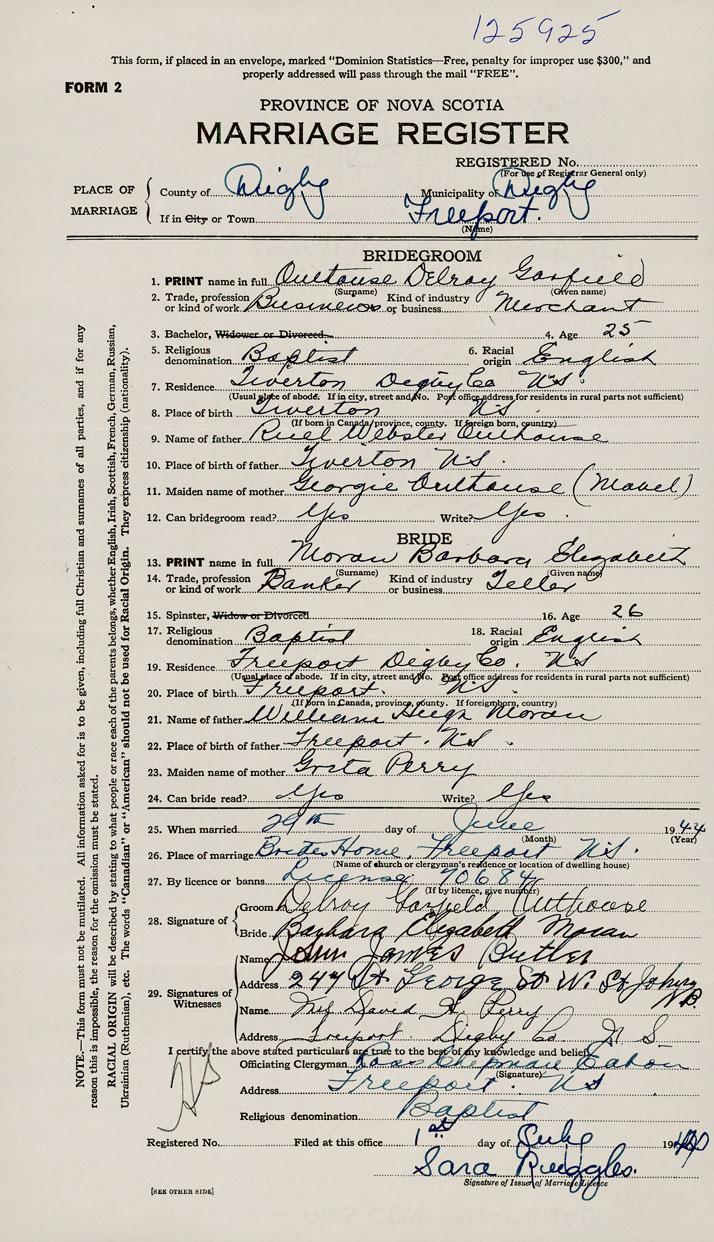 125925
This form, if placed in an envelope, marked "Dominion Statistics—Free, penalty for improper use $300," and
properly addressed will pass through the mail "FREE".
FORM 2
PROVINCE OF NOVA SCOTIA
MARRIAGE REGISTER
REGISTERED No.
(For use of Registrar General only)
PLACE OF MARRIAGE
County of Digby Municipality of Digby
If in City or Town Freeport.
(Name)
BRIDEGROOM
1. PRINT name in full Outhouse Delroy Garfield
(Surname) (Given name)
2. Trade, profession or kind of work Business Kind of industry or business Merchant
3. Bachelor, Widower or Divorced 4. Age 25
5. Religious denomination Baptist 6. Racial origin English
7. Residence Tiverton Digby Co N.S.
(Usual place of abode. If in city, street and No. Post office address for residents in rural parts not sufficient)
8. Place of birth Tiverton N.S.
(If born in Canada, province, county. If foreign born, country)
9. Name of father Ruel Webster Outhouse
10. Place of birth of father Tiverton N.S.
11. Maiden name of mother Georgie Outhouse (Mabel)
12. Can bridegroom read? Yes Write? Yes.
BRIDE
13. PRINT name in full Moran Barbara Elizabeth
(Surname) (Given name)
14. Trade, profession or kind of work Banker Kind of industry or business Teller
15. Spinster, Widow or Divorced 16. Age 26
17. Religious denomination Baptist 18. Racial origin English
19. Residence Freeport Digby Co. N.S
(Usual place of abode. If in city, street and No. Post office address for residents in rural parts not sufficient)
20. Place of birth Freeport. N.S.
(If born in Canada, province, county. If foreign born, country)
21. Name of father William Hugh Moran
22. Place of birth of father Freeport. N.S.
23. Maiden name of mother Greta Perry
24. Can bride read? Yes Write? Yes
25. When married 29th day of June 1944
(Month) (Year)
26. Place of marriage Brides Home, Freeport N.S.
(Name of church or clergyman's residence or location of dwelling house)
27. By licence or banns License 70684
(If by licence, give number)
28. Signature of
Groom Delroy Garfield Outhouse
Bride Barbara Elizabeth Moran
29. Signatures of Witnesses
Name John James Butler
Address 247 St George St W. St John, N.B.
Name Mrs David H. Perry
Address Freeport Digby Co N S
I certify the above stated particulars are true to the best of my knowledge and belief.
Officiating Clergyman Ross Chipman Eaton
(Signature)
Address Freeport. N.S
Religious denomination Baptist
Registered No. Filed at this office 1st day of July 1944
Sara Ruggles.
Signature of Issuer of Marriage Licence
[SEE OTHER SIDE]
NOTE.—This form must not be mutilated. All information asked for is to be given, including full Christian and surnames of all parties, and if for any
reason this is impossible, the reason for the omission must be stated.
RACIAL ORIGIN will be described by stating to what people or race each of the parents belongs, whether English, Irish, Scottish, French, German, Russian,
Ukrainian (Ruthenian), etc. The words "Canadian" or "American" should not be used for Racial Origin. They express citizenship (nationality).